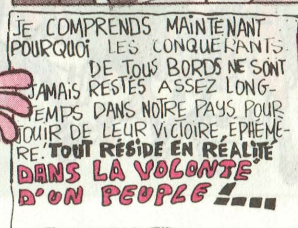 JE COMPRENDS MAINTENANT
POURQUOI LES CONQUERANTS
DE TOUS BORDS NE SONT
JAMAIS RESTÉS ASSEZ LONG-
TEMPS DANS NOTRE PAYS POUR
JOUIR DE LEUR VICTOIRE, EPHEME-
RE. TOUT RÉSIDE EN RÉALITÉ
DANS LA VOLONTE
D'UN PEUPLE !....